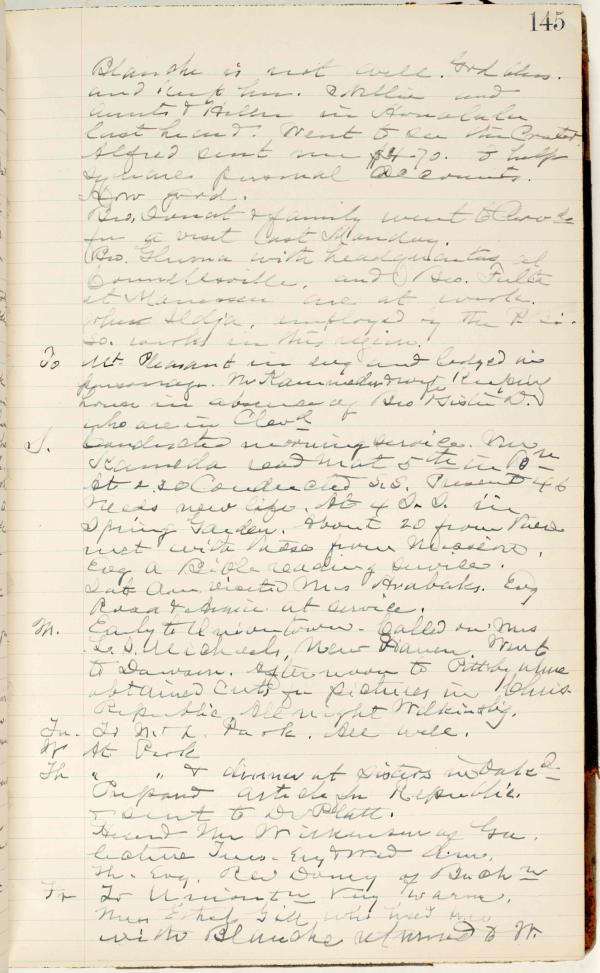 145
Blanche is not well. God bless.
and keep her. Nellie and
Aunts & Helen in Honolulu
last heard. Went to see the Crater.
Alfred sent me $4.70. to help
square personal accounts.
How good.
Bro. Donat & family went to
for a visit last Monday.
Bro. with headquarters at
Connellsville, and Bro.
at Monessen are at work.
employed by the
Co. works in this region.
To Mt. Pleasant in evg and lodged in
parsonage. keeping
house in absence of Bro & Sister D.
who are in Clevd
S. Conducted morning service.
Kamedla read Mat 5th in
At 2.20 Conducted S.S. Present 46
Needs new life. At 4 S.S. in
Spring Garden. About 20 from there
met with those from Mission.
Evg a Bible reading service.
Sab Am visited Mrs Hrabaks. Evg
Rosa & Annie at service.
M. Early to Uniontown. Called on Mrs
L. S. Michaels, New Haven. Went
to Dawson. Afternoon to Pittsby where
obtained cuts for pictures in Chris.
Republic. All night Wilkinsbg.
Tu. To Mt L. Park. All well.
W At Park
Th " " & dinner at sisters in Oakd
Prepared article for Republic.
& sent to Dr Platt.
Heard Mr Wilkinson of Ga.
lecture Tues. Evg & Wed Am.
Th. Evg. Rev of Buckn
Fr To Uniontn Very warm.
Miss Ethel Gill who
with Blanche returned to W.